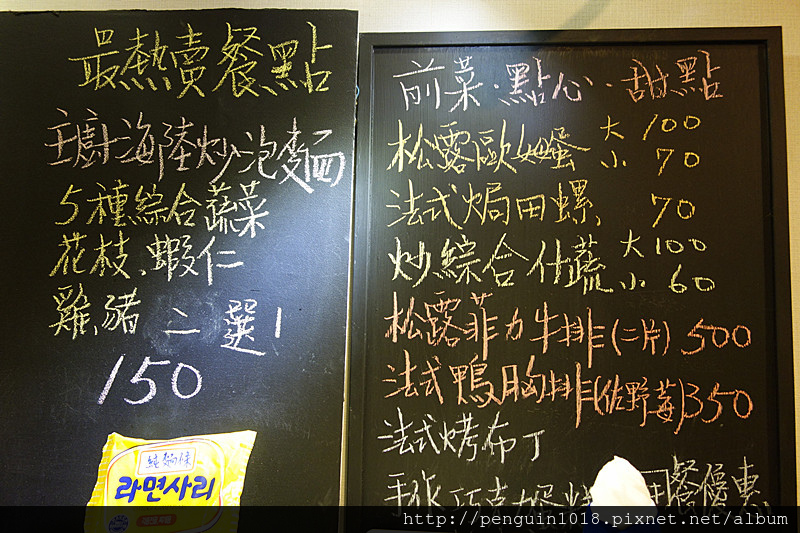 最熱賣餐點
主廚海陸炒泡麵
5種綜合蔬菜
花枝、蝦仁
雞、豬 二選1
150
純麵條
라면사리
前菜·點心·甜點
松露歐姆蛋 大 100
小 70
法式焗田螺 70
炒綜合什蔬 大 100
小 60
松露菲力牛排(二片) 500
法式鴨胸排(佐野莓) 350
法式烤布丁
手作巧克力蛋糕
餐優惠
http://penguin1018.pixnet.net/album